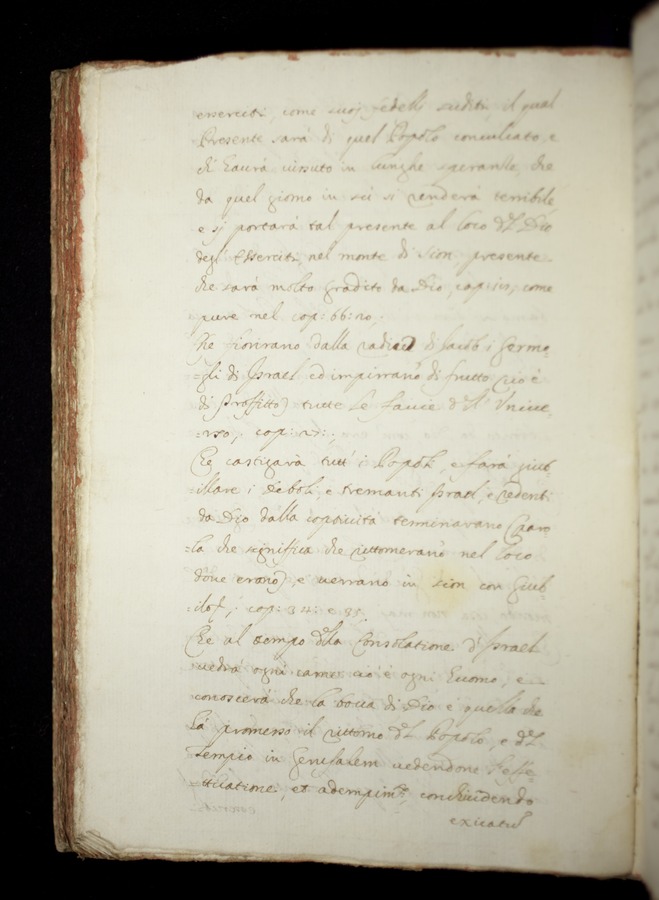 esserciti, come suoj fedeli sudditi, il qual
Presente sará di quel Popolo conculcato, e
ch' haurá vissuto in lunghe speranze, che
da quel giorno in sei si renderá terribile
e si portará tal presente al loco d'l Dio
degl' Esserciti nel monte di Sion, presente
che sará molto gradito da Dio, cap: come
pure nel cap: 66: 20,
Che fiorirano dalla radice di Jacob i Germo-
-gli di Israel ed impirrano di frutto (cio é
di profitto) tutte le faccie dell' Univer-
-rso, cap: 27:;
Che castigará tutt' i Popoli, e fará giub-
-illare i deboli, e tremanti Israel, e redenti
da Dio dalla captivitá terminarano (paro
-la che significa che rittornerano nel loco
dove erano) e verrano in Sion con giub-
-ilo, cap: 34: e 35
Che al tempo dlla Consolatione d'Israel
vedrá ogni carne cio é ogni huomo, e
conoscerá che la bocca di Dio e quella che
há promesso il rittorno d'l Popolo, e d'l
Tempio in Gerusalem vedendone l'effe-
-ttuatione, et adempim:to, conchiudendo